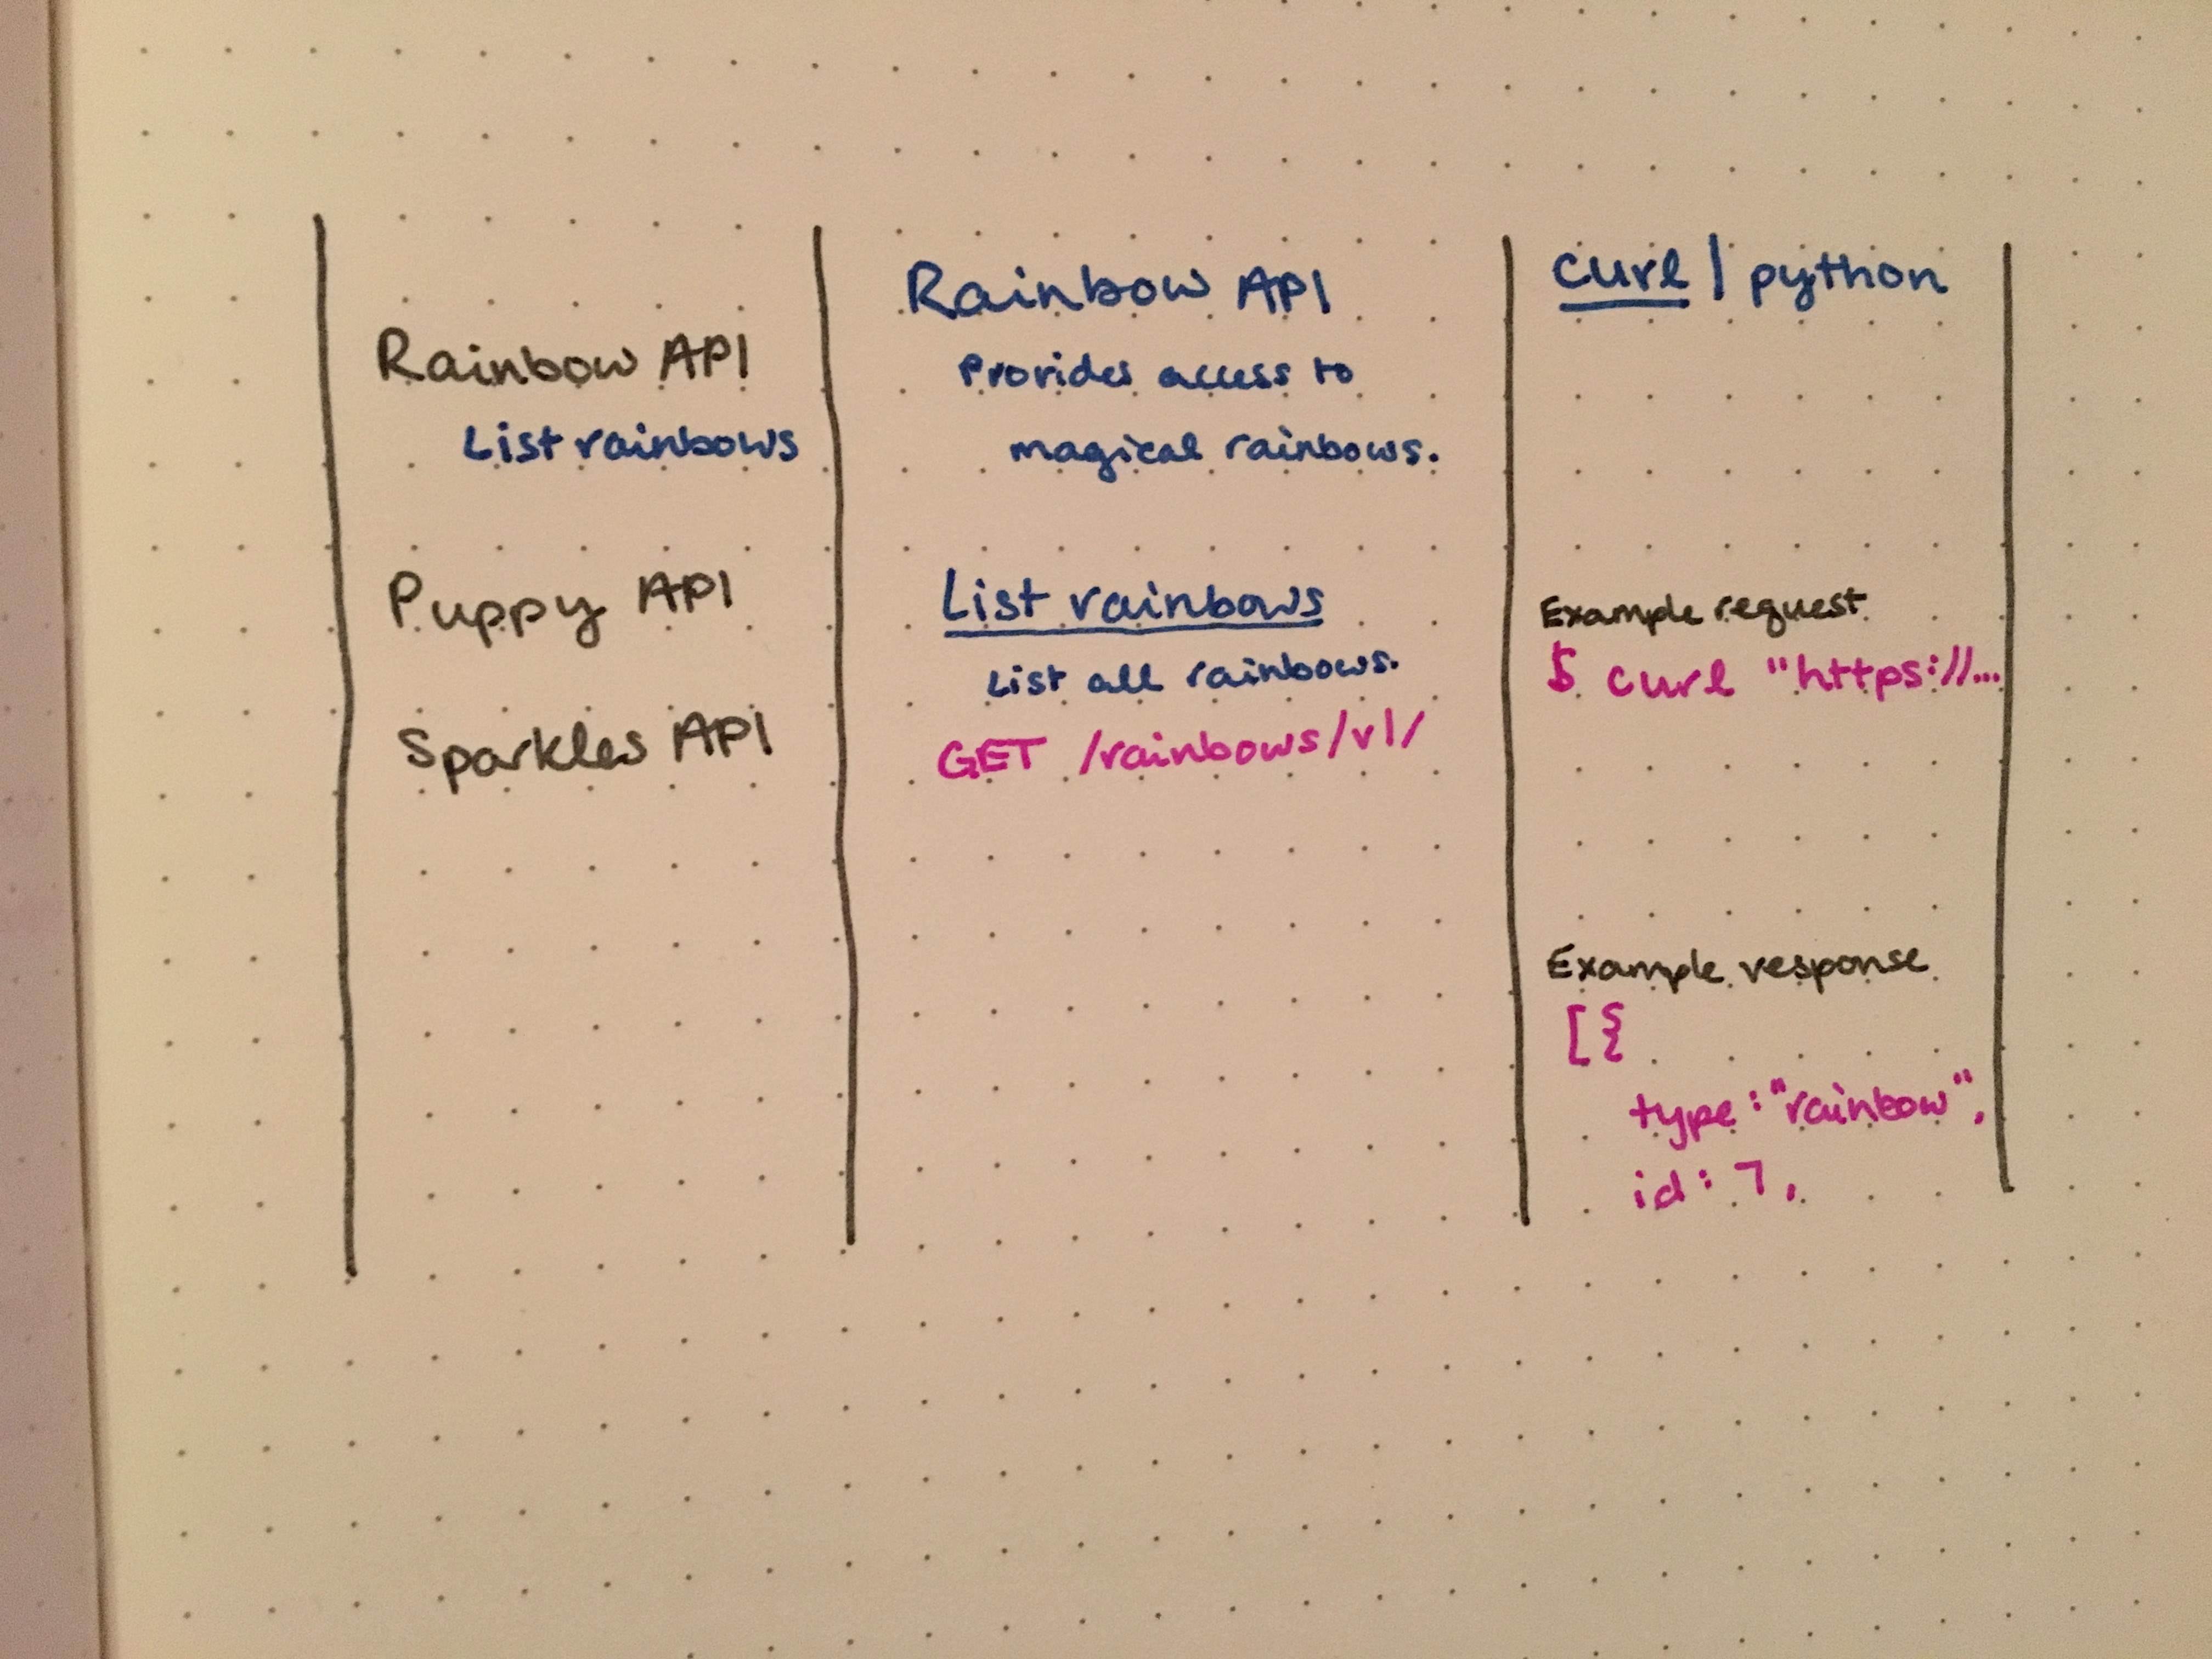 Rainbow API
List rainbows
Puppy API
Sparkles API
Rainbow API
Provides access to
magical rainbows.
List rainbows
List all rainbows.
GET /rainbows/v1/
curl | python
Example request
$ curl "https://...
Example response
[{
type: "rainbow",
id: 7,